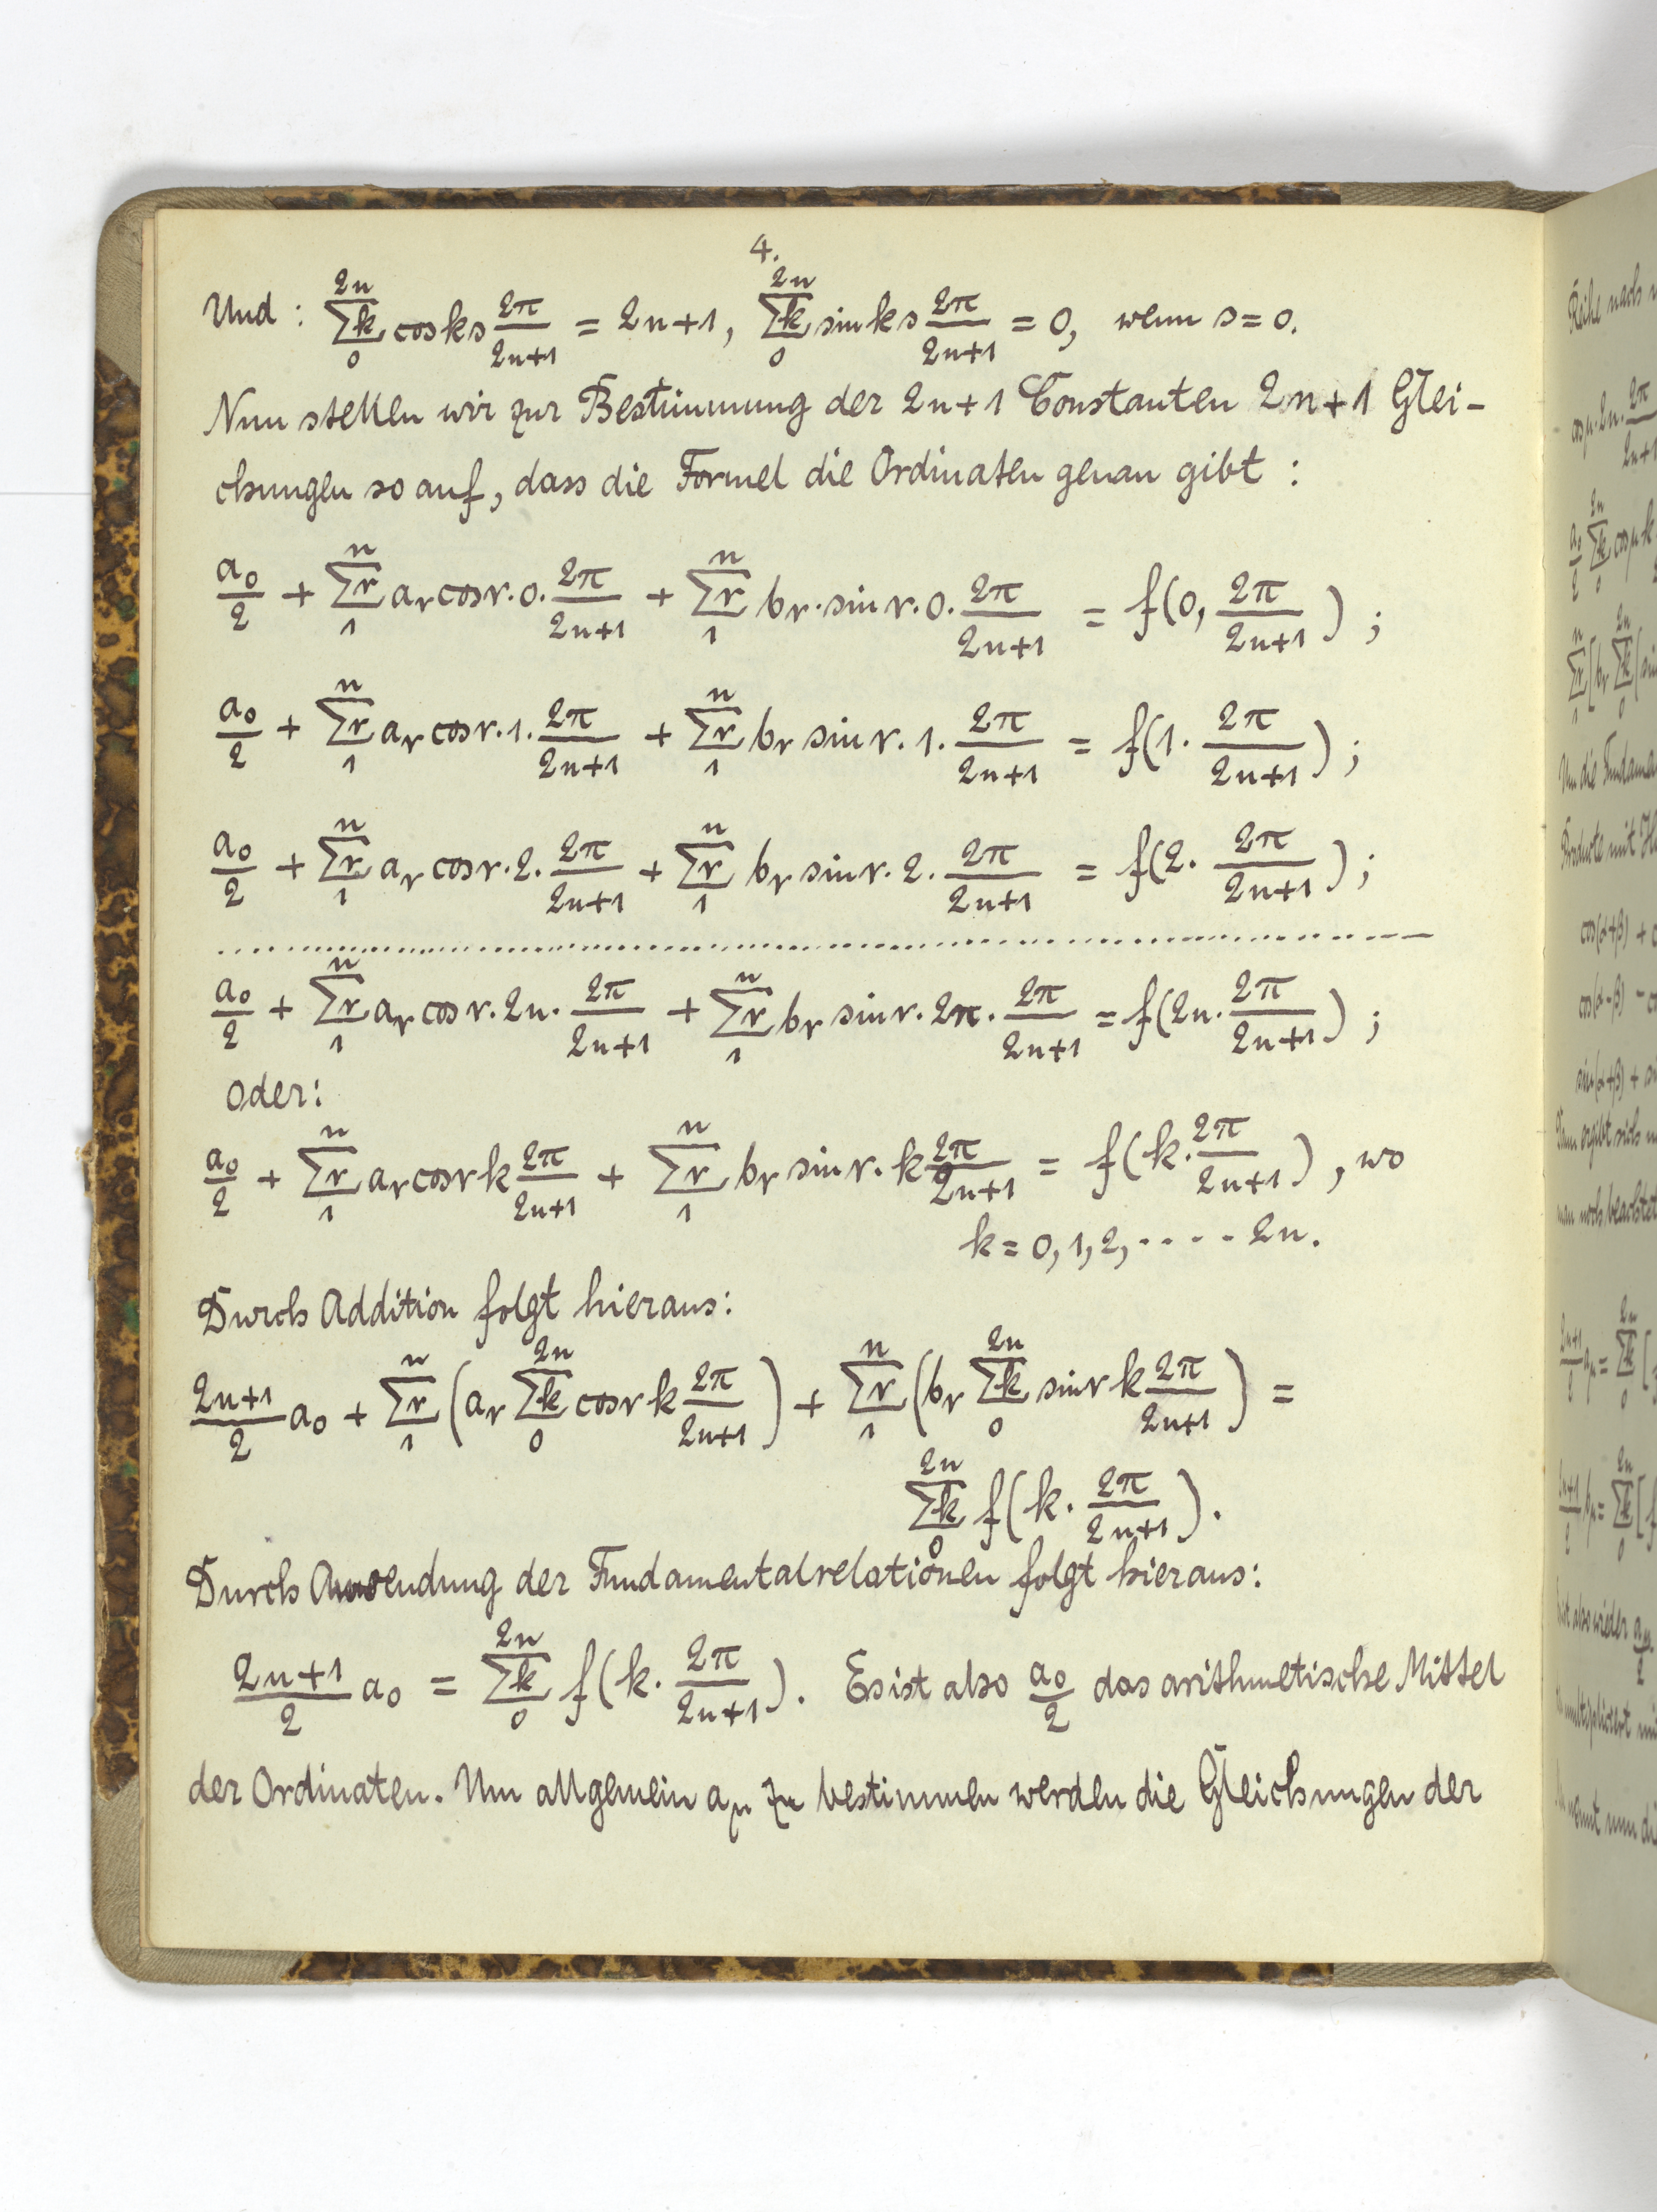 4.
Und : \sum_{0}^{2n}{}_k cos ks \frac{2π}{2n+1} = 2n+1, \sum_{0}^{2n}{}_k sin ks \frac{2π}{2n+1} = 0, wenn s = 0.
Nun stellen wir zur Bestimmung der 2n+1 Constanten 2n+1 Glei-
chungen so auf, dass die Formel die Ordinaten genau gibt :
\frac{a_0}{2} + \sum_{1}^{n}{}_r a_r cos r·0·\frac{2π}{2n+1} + \sum_{1}^{n}{}_r b_r·sin r·0·\frac{2π}{2n+1} = f(0, \frac{2π}{2n+1}) ;
\frac{a_0}{2} + \sum_{1}^{n}{}_r a_r cos r·1·\frac{2π}{2n+1} + \sum_{1}^{n}{}_r b_r sin r·1·\frac{2π}{2n+1} = f(1·\frac{2π}{2n+1}) ;
\frac{a_0}{2} + \sum_{1}^{n}{}_r a_r cos r·2·\frac{2π}{2n+1} + \sum_{1}^{n}{}_r b_r sin r·2·\frac{2π}{2n+1} = f(2·\frac{2π}{2n+1}) ;
\frac{a_0}{2} + \sum_{1}^{n}{}_r a_r cos r·2n·\frac{2π}{2n+1} + \sum_{1}^{n}{}_r b_r sin r·2n·\frac{2π}{2n+1} = f(2n·\frac{2π}{2n+1}) ;
oder:
\frac{a_0}{2} + \sum_{1}^{n}{}_r a_r cos rk \frac{2π}{2n+1} + \sum_{1}^{n}{}_r b_r sin r·k \frac{2π}{2n+1} = f(k·\frac{2π}{2n+1}) , wo
k = 0, 1, 2, ····· 2n.
Durch Addition folgt hieraus:
\frac{2n+1}{2} a_0 + \sum_{1}^{n}{}_r (a_r \sum_{0}^{2n}{}_k cos rk \frac{2π}{2n+1}) + \sum_{1}^{n}{}_r (b_r \sum_{0}^{2n}{}_k sin rk \frac{2π}{2n+1}) =
\sum_{0}^{2n}{}_k f(k·\frac{2π}{2n+1}).
Durch Anwendung der Fundamentalrelationen folgt hieraus:
\frac{2n+1}{2} a_0 = \sum_{0}^{2n}{}_k f(k·\frac{2π}{2n+1}). Es ist also \frac{a_0}{2} das arithmetische Mittel
der Ordinaten. Um allgemein a_μ zu bestimmen werden die Gleichungen der